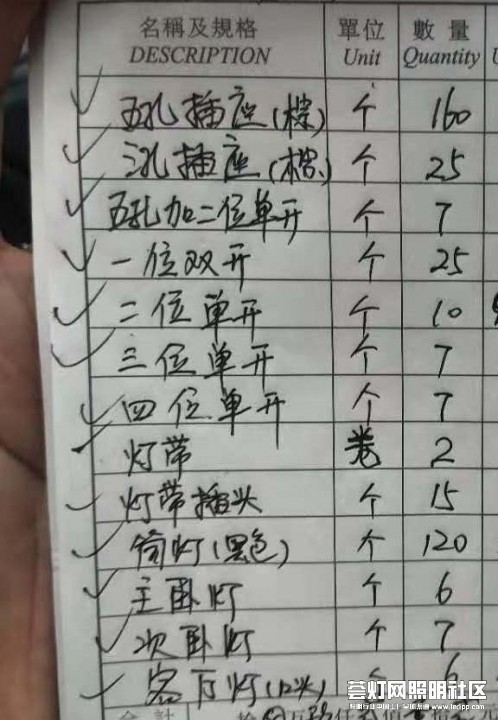 名稱及規格 單位 數量
DESCRIPTION Unit Quantity
五孔插座(棕) 个 160
三孔插座(棕) 个 25
五孔加二位单开 个 7
一位双开 个 25
二位单开 个 10
三位单开 个 7
四位单开 个 7
灯带 卷 2
灯带插头 个 15
筒灯(黑色) 个 120
主卧灯 个 6
次卧灯 个 7
客厅灯(12头) 个 6
合計
荟灯网照明社区